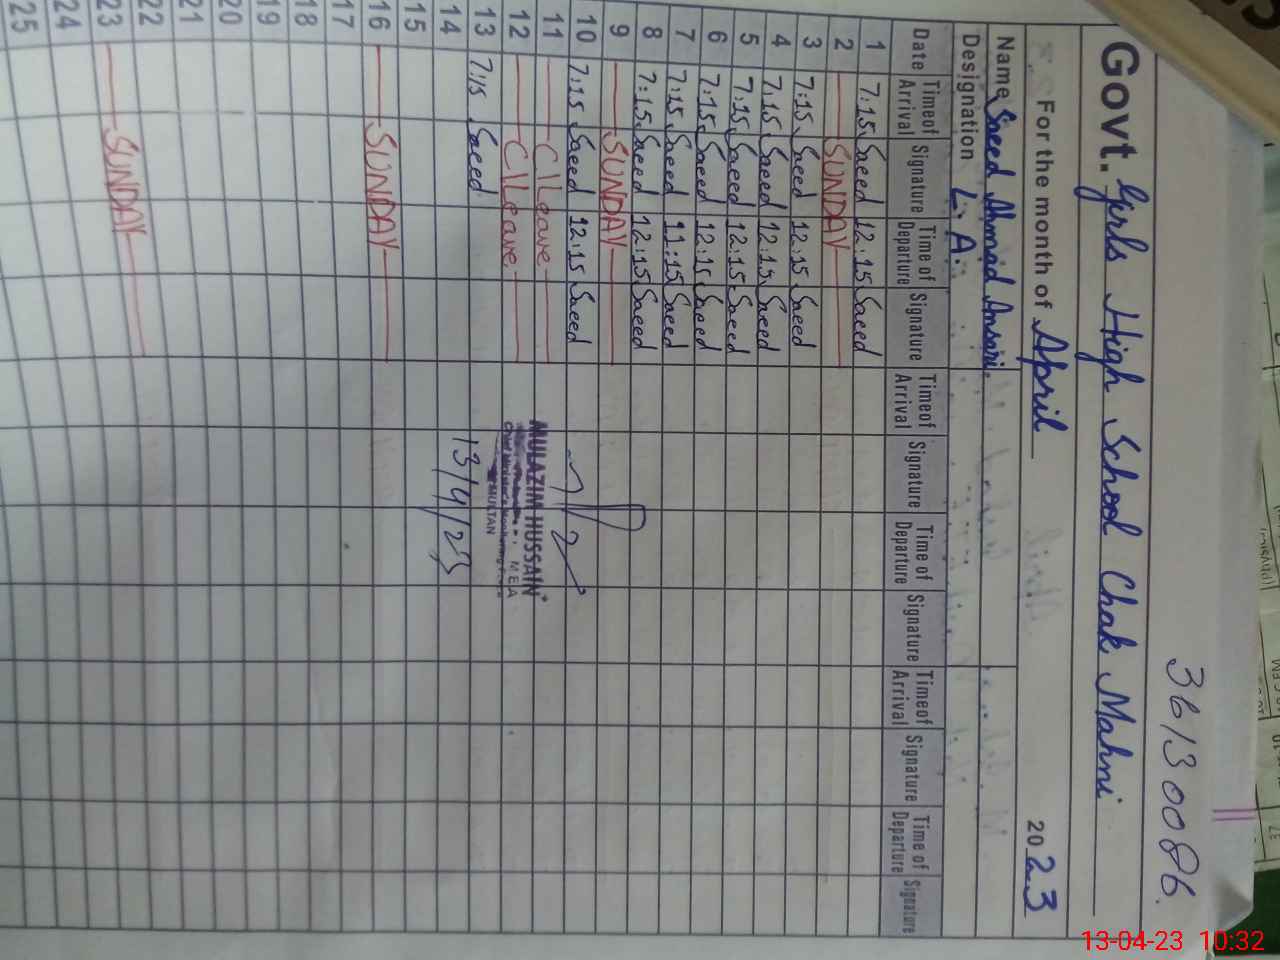 36130086
Govt. Girls High School Chak Mahni
For the month of April 2023
Name Saeed Ahmad Ansari.
Designation L. A.
Date Timeof Arrival Signature Time of Departure Signature Timeof Arrival Signature Time of Departure Signature Timeof Arrival Signature Time of Departure Signature
1 7:15 Saeed 12:15 Saeed
2 SUNDAY
3 7:15 Saeed 12:15 Saeed
4 7:15 Saeed 12:15 Saeed
5 7:15 Saeed 12:15 Saeed
6 7:15 Saeed 12:15 Saeed
7 7:15 Saeed 11:15 Saeed
8 7:15 Saeed 12:15 Saeed
9 SUNDAY
10 7:15 Saeed 12:15 Saeed
11 C/Leave
12 C/Leave
13 7:15 Saeed
14
15
16 SUNDAY
17
18
19
20
21
22
23 SUNDAY
24
25
MULAZIM HUSSAIN
MEA
Chief Minister's Monitoring Force
MULTAN
13/4/23
13-04-23 10:32